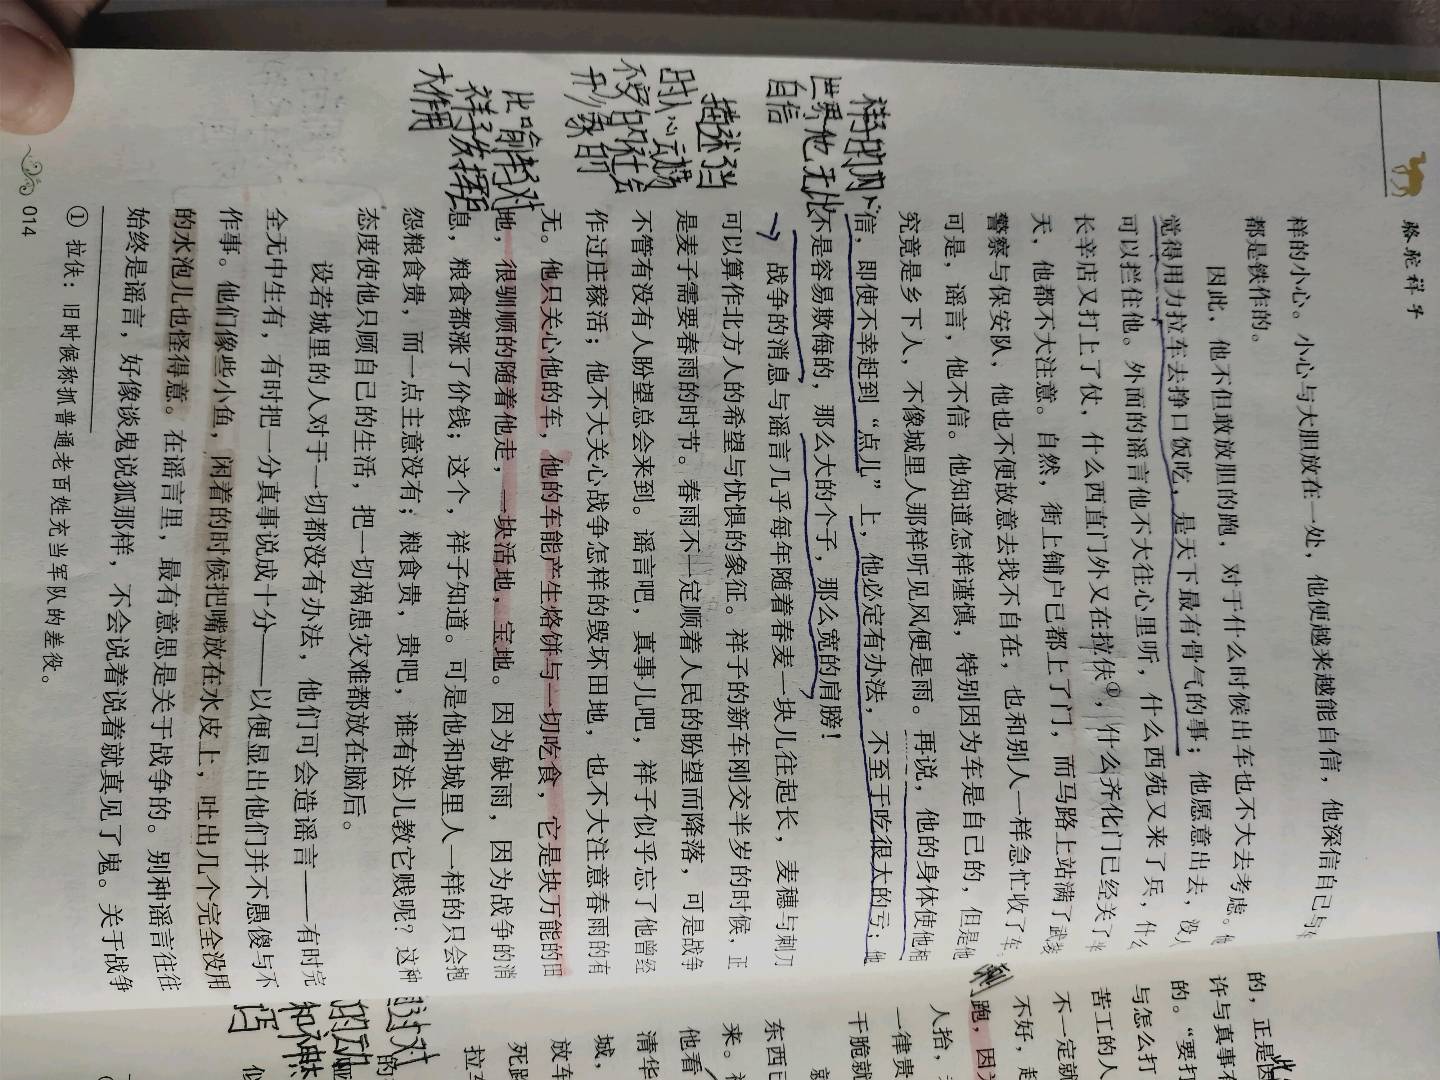 骆驼祥子
样的小心。小心与大胆放在一处，他便越来越能自信，他深信自己与
都是铁作的。
因此，他不但敢放胆的跑，对于什么时候出车也不大去考虑。他
觉得用力拉车去挣口饭吃，是天下最有骨气的事；他愿意出去，没人
可以拦住他。外面的谣言他不大往心里听，什么西苑又来了兵，什么
长辛店又打上了仗，什么西直门外又在拉伕①，什么齐化门已经关了半
天，他都不大注意。自然，街上铺户已都上了门，而马路上站满了武装
警察与保安队，他也不便故意去找不自在，也和别人一样急忙收了车。
可是，谣言，他不信。他知道怎样谨慎，特别因为车是自己的，但是他
究竟是乡下人，不像城里人那样听见风便是雨。再说，他的身体使他相
信，即使不幸赶到“点儿”上，他必定有办法，不至于吃很大的亏；他
不是容易欺侮的，那么大的个子，那么宽的肩膀！
战争的消息与谣言几乎每年随着春麦一块儿往起长，麦穗与刺刀
可以算作北方人的希望与忧惧的象征。祥子的新车刚交半岁的时候，正
是麦子需要春雨的时节。春雨不一定顺着人民的盼望而降落，可是战争
不管有没有人盼望总会来到。谣言吧，真事儿吧，祥子似乎忘了他曾经
作过庄稼活；他不大关心战争怎样的毁坏田地，也不大注意春雨的有
无。他只关心他的车，他的车能产生烙饼与一切吃食，它是块万能的田
地，很驯顺的随着他走，一块活地，宝地。因为缺雨，因为战争的消
息，粮食都涨了价钱；这个，祥子知道。可是他和城里人一样的只会抱
怨粮食贵，而一点主意没有；粮食贵，贵吧，谁有法儿教它贱呢？这种
态度使他只顾自己的生活，把一切祸患灾难都放在脑后。
设若城里的人对于一切都没有办法，他们可会造谣言——有时完
全无中生有，有时把一分真事说成十分——以便显出他们并不愚傻与不
作事。他们像些小鱼，闲着的时候把嘴放在水皮上，吐出几个完全没用
的水泡儿也怪得意。在谣言里，最有意思是关于战争的。别种谣言往往
始终是谣言，好像谈鬼说狐那样，不会说着说着就真见了鬼。关于战争
① 拉伕：旧时候称抓普通老百姓充当军队的差役。
014
祥子的内心
世界他无比
自信
描述社
时人心动荡
不安的社会
形象的
比喻车对
祥子发挥巨
大作用
的，正是因
许与真事有
的。“要打
与怎么打
苦工的人
不一定就
不好，赶
跑，因为
人抬，
一律贵
干脆就
东西已
来。
他看
清华
城，
放车
死
拉车
通过对
的动
和神态